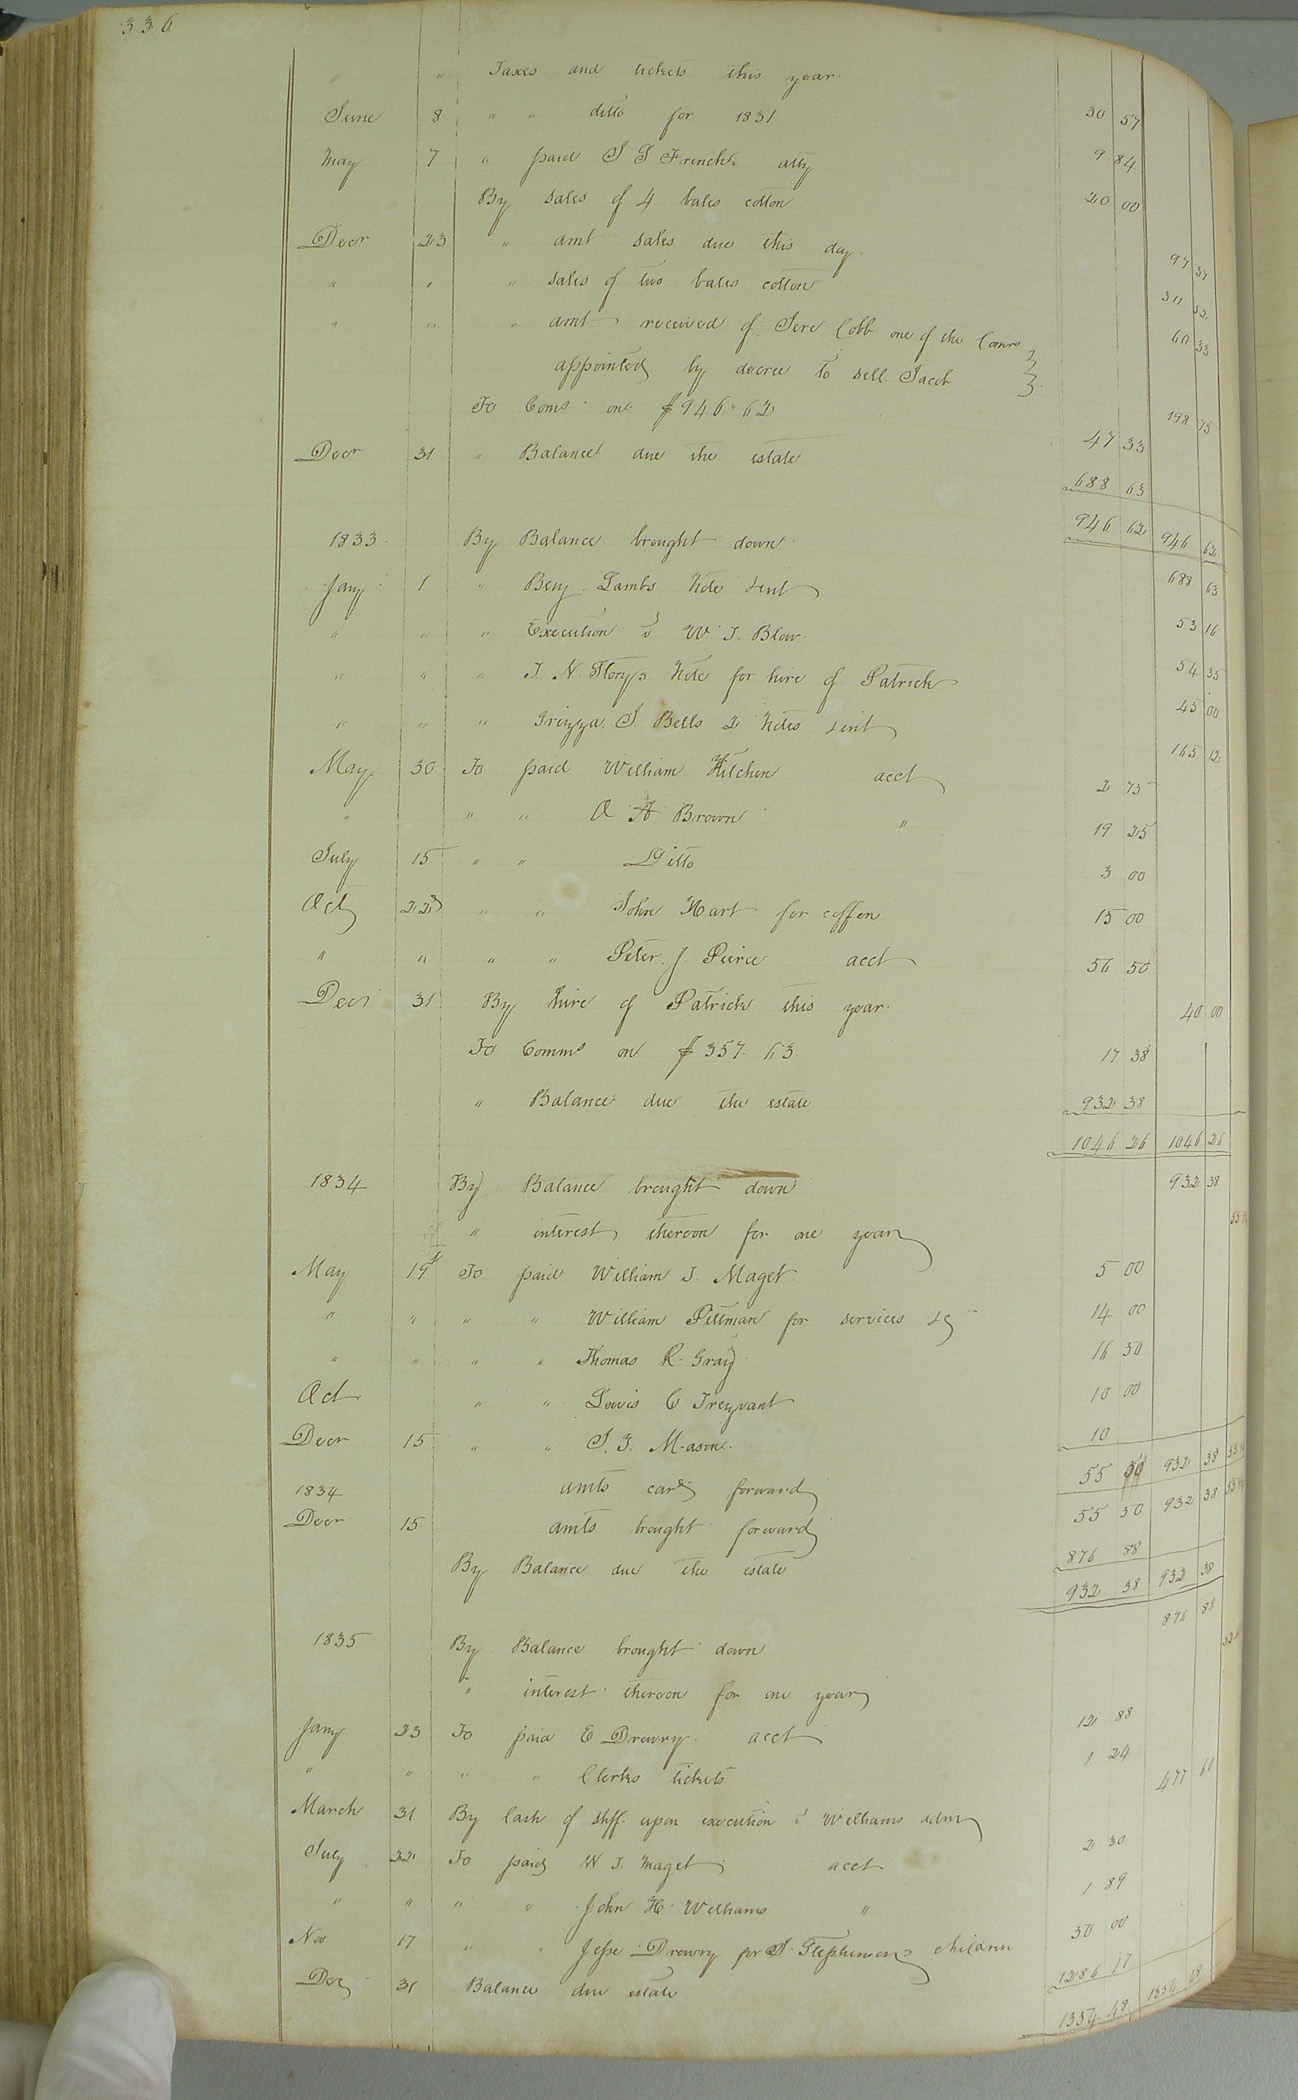 336
" " Taxes and tickets this year 30 57
June 8 " " ditto for 1831 9 84
May 7 " paid S S French atty 20 00
By sales of 4 bales cotton 97 37
Decr 23 " amt sales due this day
" " " sales of two bales cotton 60 33
" " " amt received of Jere Cobb one of the Comrs
appointed by decree to sell Jacob 198 75
To Coms on $946.62 47 33
Decr 31 " Balance due the estate 688 63
946 62 946 62
1833 By Balance brought down 688 63
Jany 1 " Benj Lambs Note & int 53 16
" " " Execution W J Blow 54 35
" " " J. N. Storys Note for hire of Patrick 45 00
" " " S Bells 2 Notes & int 165 12
May 30 To paid William Kitchen acct 2 75
" " " A Brown " 19 25
July 15 " " Ditto 3 00
Oct 22 " " John Hart for coffen 15 00
" " " " Peter J. Peirce acct 56 50
Decr 31 By hire of Patrick this year 40 00
To Comms on $357.63 17 38
" Balance due the estate 932 38
1046 26 1046 26
1834 By Balance brought down 932 38
" interest thereon for one year
May 19 To paid William J. Maget 5 00
" " " " William Pittman for services &c 14 00
" " " " Thomas R. Gray 16 50
Oct " " Lewis C Treyvant 10 00
Decr 15 " " J. Y. Mason 10
55 50 932 38
1834 amts card forward 55 50 932 38
Decr 15 amts brought forward
By Balance due the estate 876 88
932 38 932 38
1835 By Balance brought down 876 88
" interest thereon for one year
Jany 23 To paid E Drewry acct 12 88
" " " " Clerks tickets 1 24
March 31 By Cash of shff. upon execution Williams admr 477 60
July 22 To paid W J. Maget acct 2 30
" " " " John H. Williams " 1 89
Nov 17 " " Jesse Drewry for S. Stephensons children 50 00
Dec 31 Balance due estate 1286 17
1354 48 1354 48